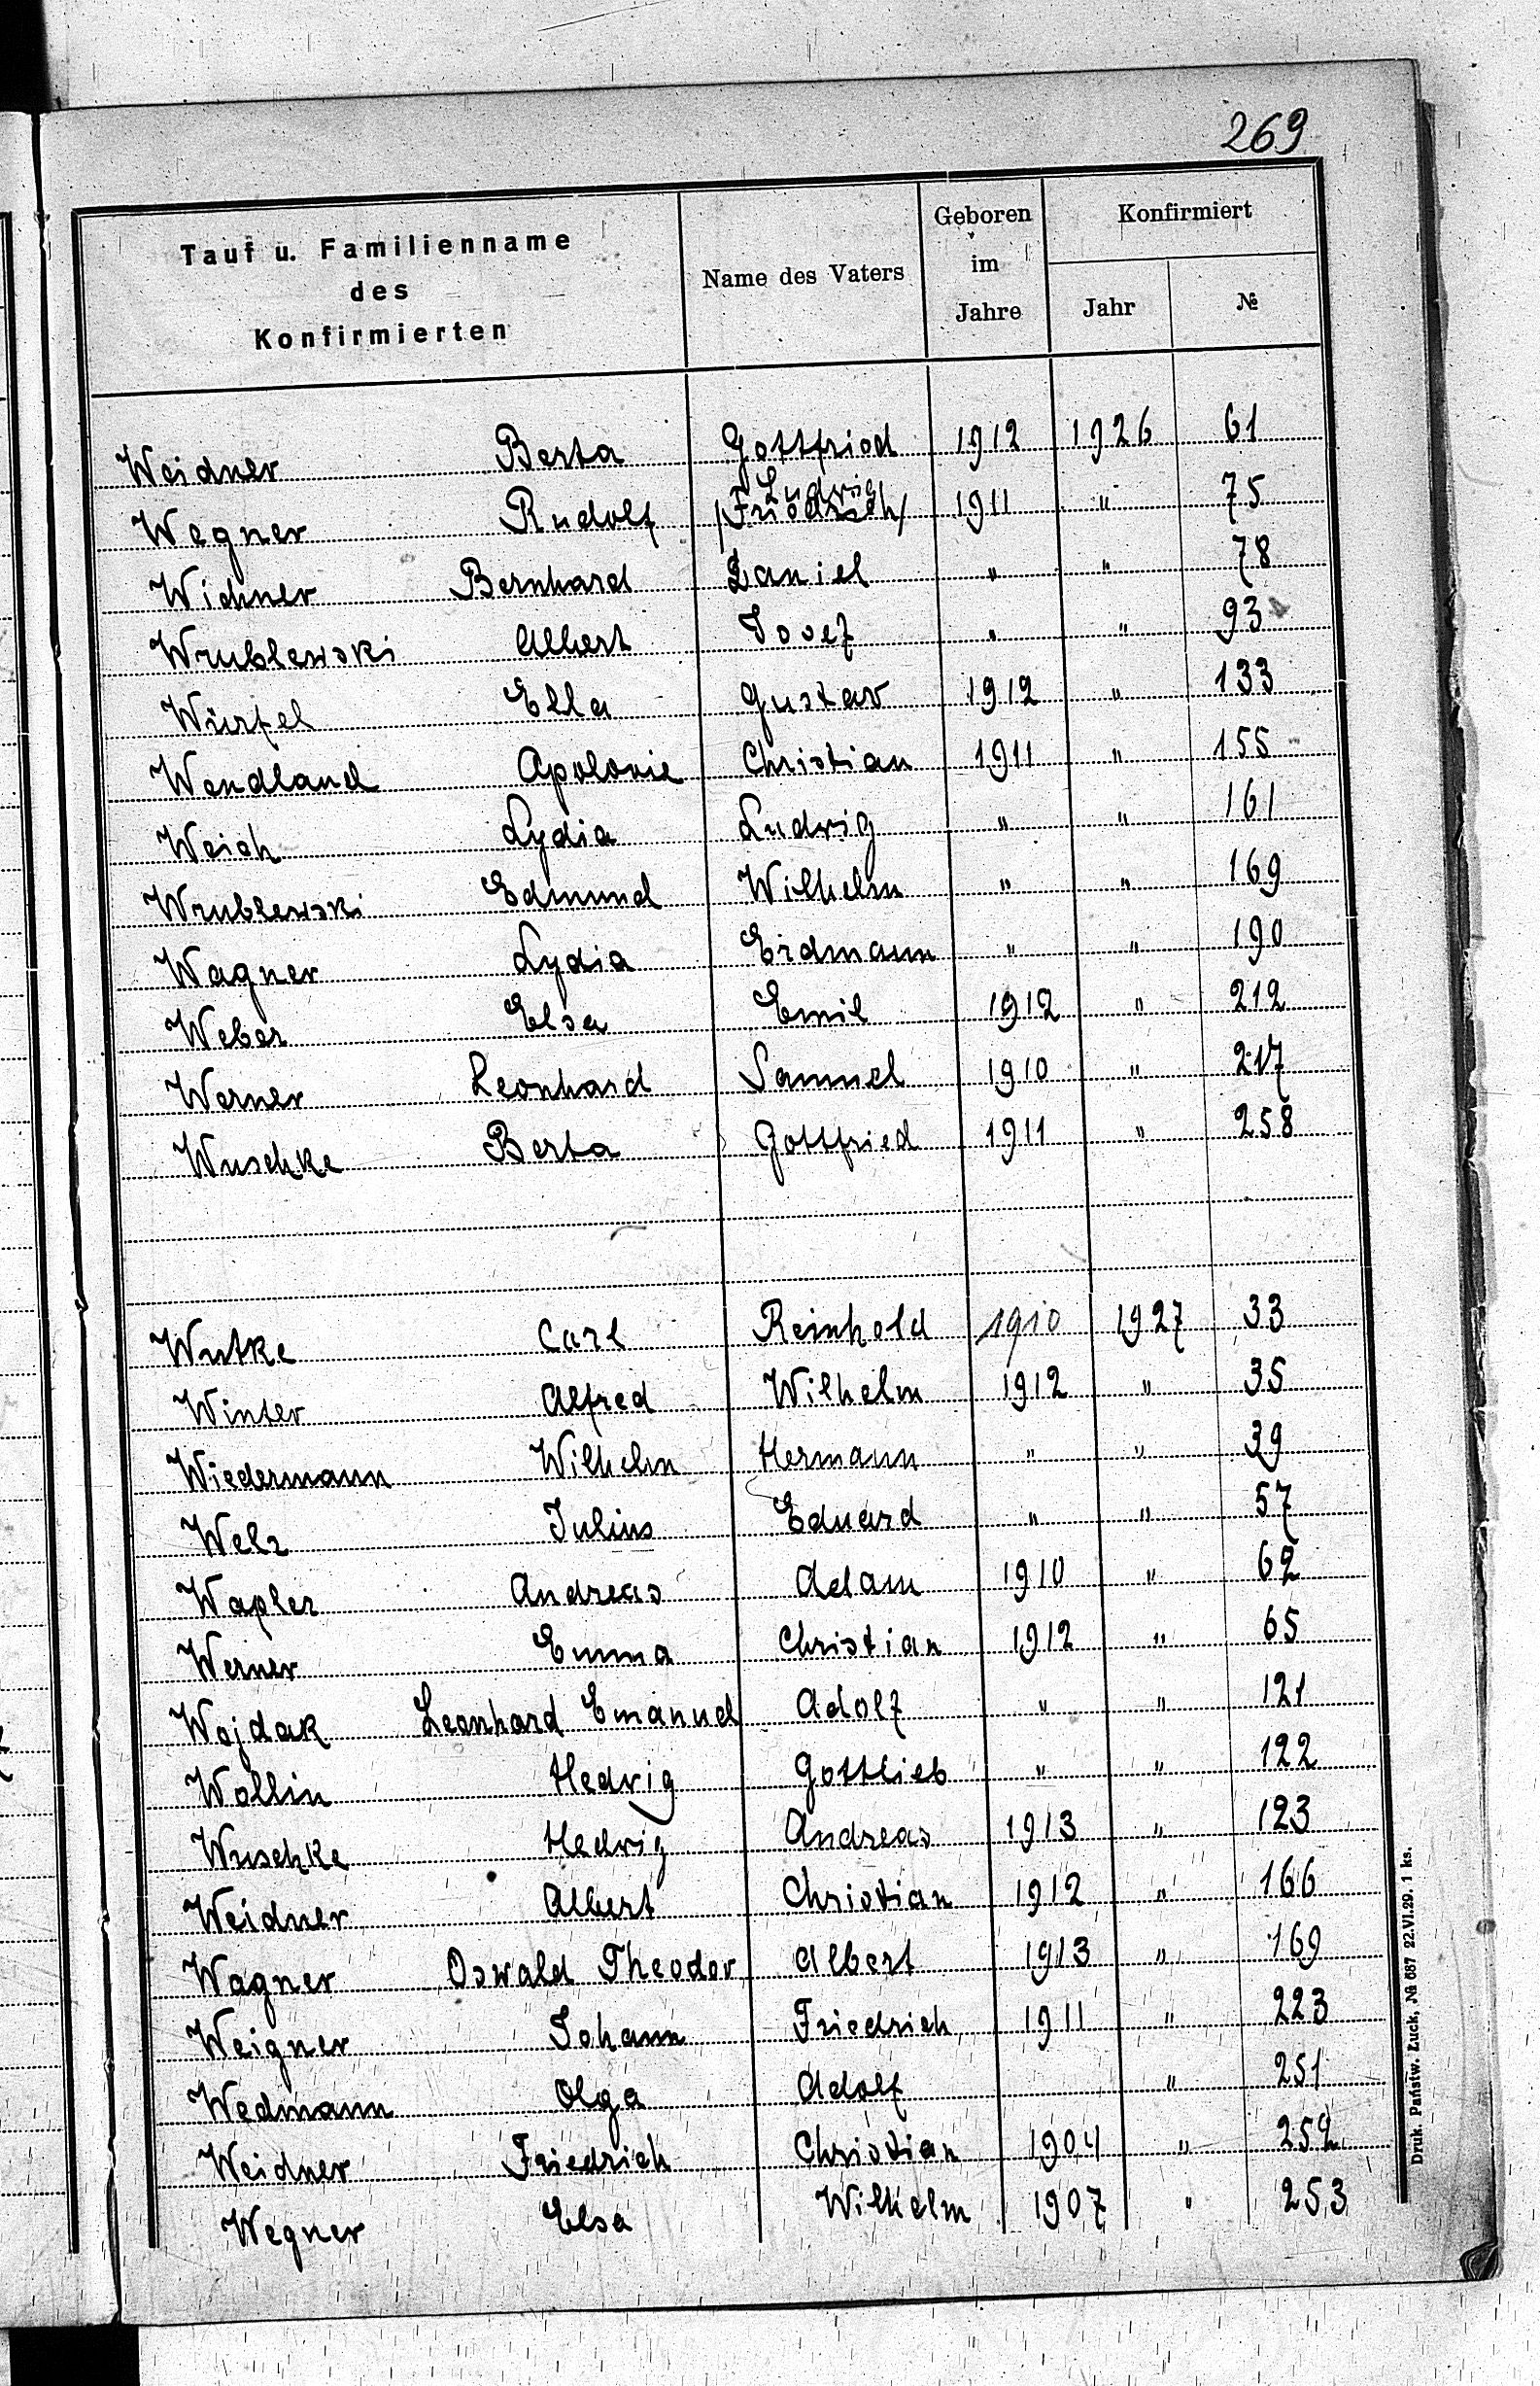 269
Tauf u. Familienname des Konfirmierten Name des Vaters Geboren im Jahre Konfirmiert Jahr №
Weidner Berta Gottfried 1912 1926 61
Ludwig
Wegner Rudolf /Friedrich/ 1911 " 75
Wichner Bernhard Daniel " " 78
Wrublewski Albert Josef " " 93
Würfel Ella Gustav 1912 " 133
Wendland Apolonie Christian 1911 " 155
Weich Lydia Ludwig " " 161
Wrublewski Edmund Wilhelm " " 169
Wagner Lydia Erdmann " " 190
Weber Elsa Emil 1912 " 212
Werner Leonhard Samuel 1910 " 217
Wuschke Berta Gottfried 1911 " 258
Wutke Carl Reinhold 1910 1927 33
Winter Alfred Wilhelm 1912 " 35
Wiedermann Wilhelm Hermann " " 39
Welz Julius Eduard " " 57
Wapler Andreas Adam 1910 " 62
Werner Emma Christian 1912 " 65
Wojdak Leonhard Emanuel Adolf " " 121
Wollin Hedwig Gottlieb " " 122
Wuschke Hedwig Andreas 1913 " 123
Weidner Albert Christian 1912 " 166
Wagner Oswald Theodor Albert 1913 " 169
Weigner Johann Friedrich 1911 " 223
Wedmann Olga Adolf " 251
Weidner Friedrich Christian 1904 " 252
Wegner Elsa Wilhelm 1907 " 253
Druk. Państw. Łuck, № 687 22.VI.29. 1 ks.